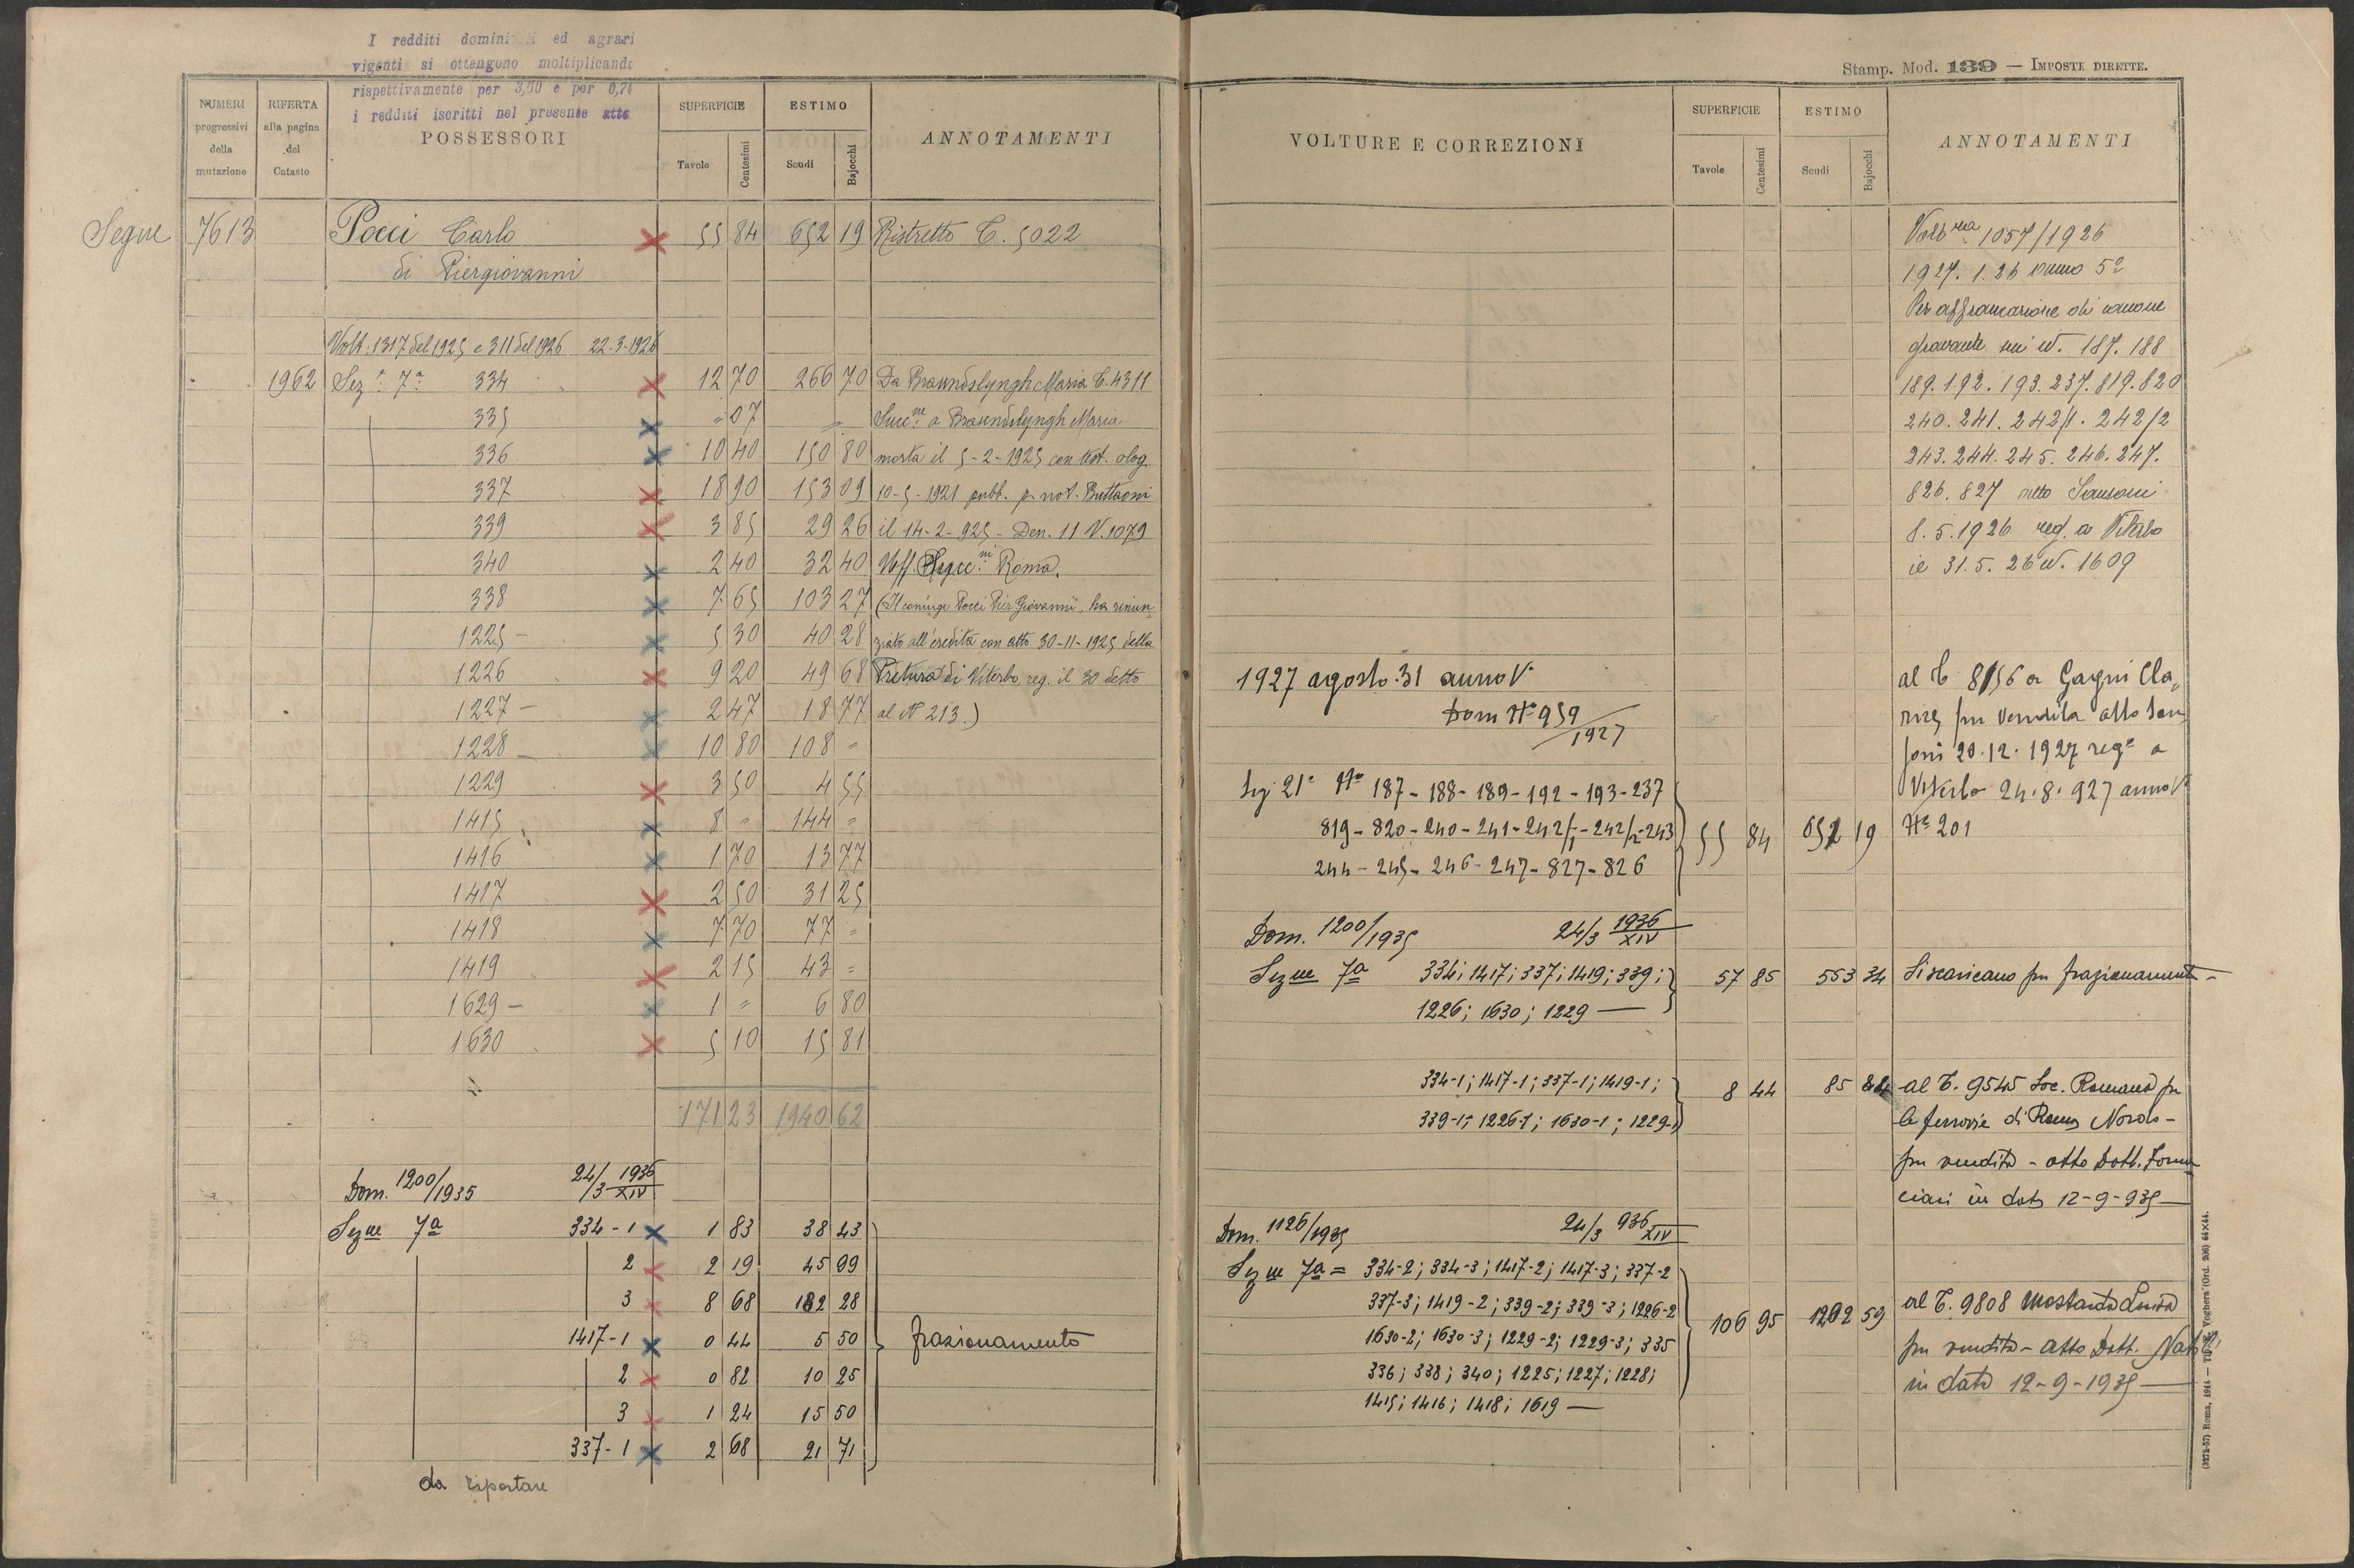 I redditi domini ed agrari
vigenti si ottengono moltiplicando
rispettivamente per 3,60 e per 0,7
i redditi iscritti nel presente atto
NUMERI progressivi della mutazione
RIFERTA alla pagina del Catasto
POSSESSORI
SUPERFICIE
Tavole Centesimi
ESTIMO
Scudi Bajocchi
ANNOTAMENTI
Segue 7613 Pocci Carlo 55 84 652 19 Ristretto C. 5022
di Piergiovanni
Volt. 1317 del 1925 e 311 del 1926 22-3-1926
1962 Sez.e 7a 334 12 70 266 70 Da Braunoslyngh Maria C. 4311
335 = 07 = Succ.ne a Braunoslyngh Maria
336 10 40 150 80 morta il 5-2-1925 con test. olog.
337 18 90 153 09 10-5-1921 pubb. p. not. Buttaoni
339 3 85 29 26 il 14-2-925 - Den. 11 V. 1079
340 2 40 32 40 Uff. Succ.ni Roma.
338 7 65 103 27 (Il coniuge Pocci Pier Giovanni, ha rinun=
1225 - 5 30 40 28 ziato all'eredità con atto 30-11-1925 della
1226 9 20 49 68 Pretura di Viterbo reg. il 30 detto
1227 - 2 47 18 77 al N° 213.)
1228 - 10 80 108 =
1229 3 50 4 55
1415 8 = 144 =
1416 1 70 13 77
1417 2 50 31 25
1418 7 70 77 =
1419 2 15 43 =
1629 - 1 = 6 80
1630 5 10 15 81
171 23 1940 62
Dom. 1200/1935 24/3 1936 XIV
Sezne 7a 334-1 1 83 38 43
2 2 19 45 99
3 8 68 182 28
1417-1 0 44 5 50 frazionamento
2 0 82 10 25
3 1 24 15 50
337-1 2 68 21 71
da riportare
Stamp. Mod. 139 — IMPOSTE DIRETTE.
VOLTURE E CORREZIONI
SUPERFICIE
Tavole Centesimi
ESTIMO
Scudi Bajocchi
ANNOTAMENTI
1057/1926
1927. 1. 26 anno 5°
Per affrancazione di canone
gravante sui N. 187. 188
189. 192. 193. 237. 819. 820
240. 241. 242/1. 242/2
243. 244. 245. 246. 247.
826. 827 atto Sansoni
8. 5. 1926 reg. a Viterbo
il 31. 5. 26 N. 1609
1927 agosto 31 anno V°
Dom N° 959/1927
al C 8156 a Gagni Cla=
rice per vendita atto San
soni 20.12.1927 reg.e a
Viterbo 24.8.927 anno V°
N° 201
Sez 21a N° 187-188-189-192-193-237
819-820-240-241-242/1-242/2-243
244-245-246-247-827-826
55 84 652 19
Dom. 1200/1935 24/3 1936 XIV
Sezne 7a 334; 1417; 337; 1419; 339;
1226; 1630; 1229 —
57 85 553 34 Si scaricano per frazionamento -
334-1; 1417-1; 337-1; 1419-1;
339-1; 1226-1; 1630-1; 1229-1
8 44 85 84 al C. 9545 Soc. Romana per
le ferrovie di Roma Nord -
per vendita - atto Dott.
in data 12-9-935 —
Dom. 1126/1935 24/3 936 XIV
Sezne 7a = 334-2; 334-3; 1417-2; 1417-3; 337-2
337-3; 1419-2; 339-2; 339-3; 1226-2
1630-2; 1630-3; 1229-2; 1229-3; 335
336; 338; 340; 1225; 1227; 1228;
1415; 1416; 1418; 1619 —
106 95 1202 59 al C. 9808 Mostarda
per vendita - atto Dott.
in data 12-9-1935 —